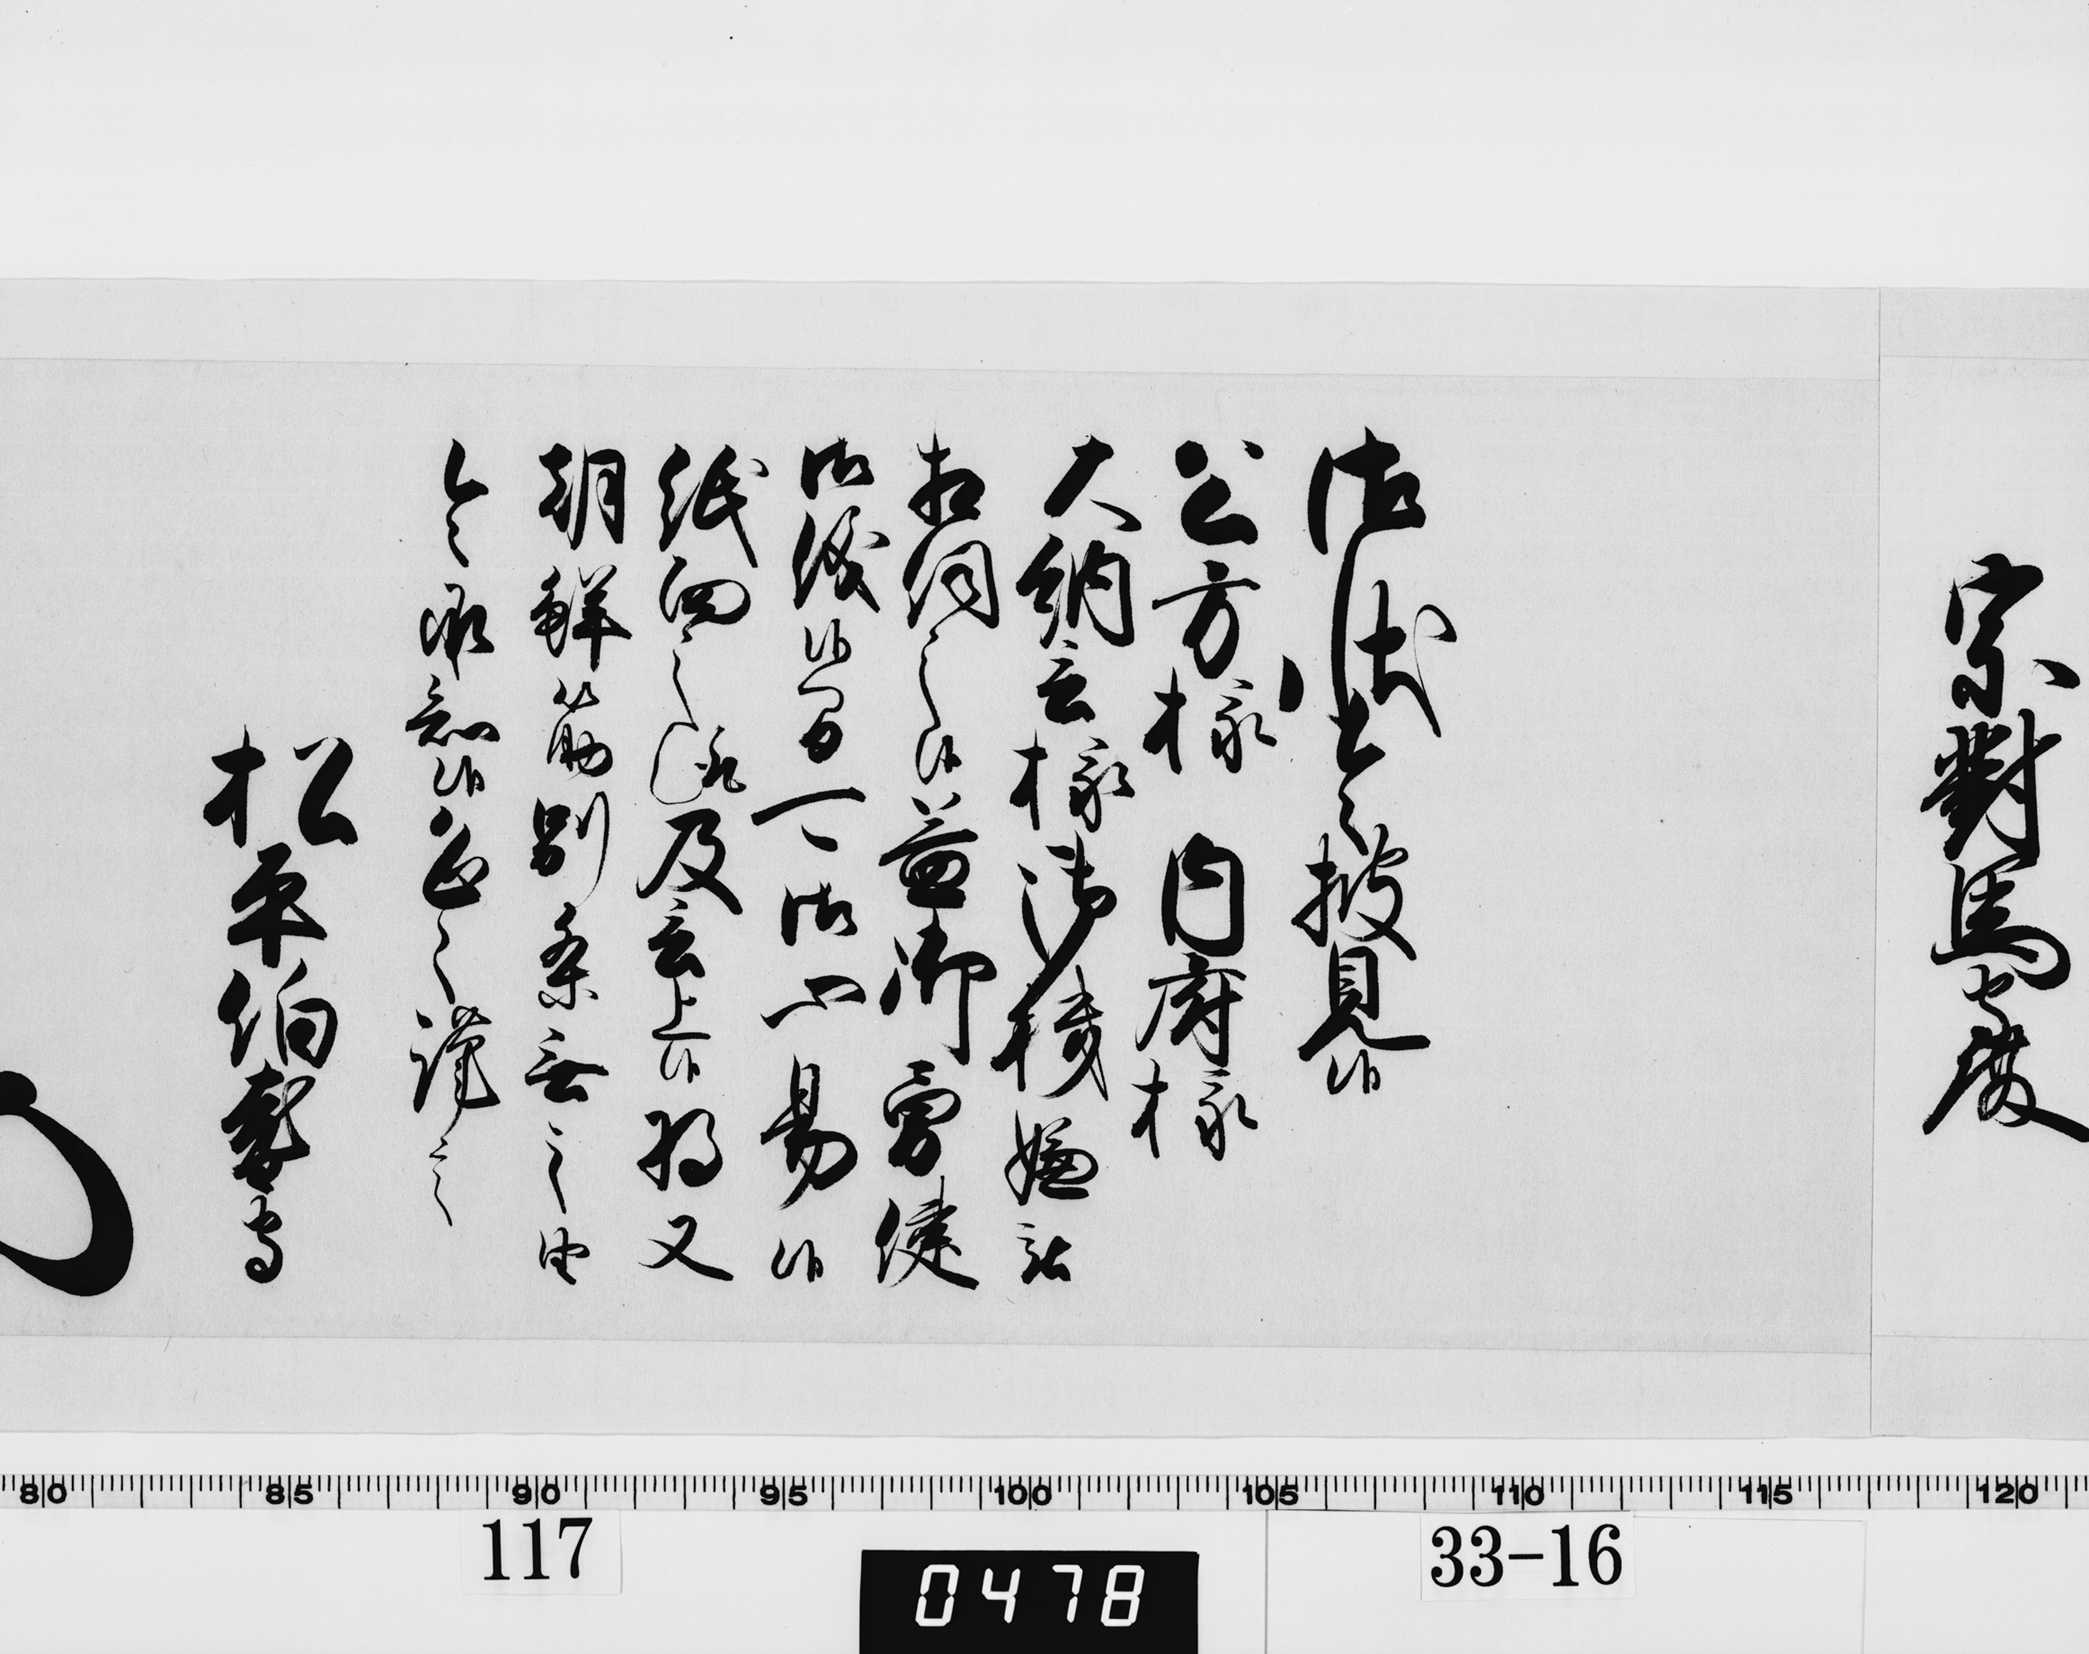 宗對馬守殿
御状令披見候
公方様 内府様
大納言様御機嫌被
相伺之候益御勇健
御儀候間可御心易候
紙面之趣及言上候将又
朝鮮筋別条無之由
令承知候恐々謹言
松平伯耆守
80 85 90 95 100 105 110 115 120
117
0478
33-16